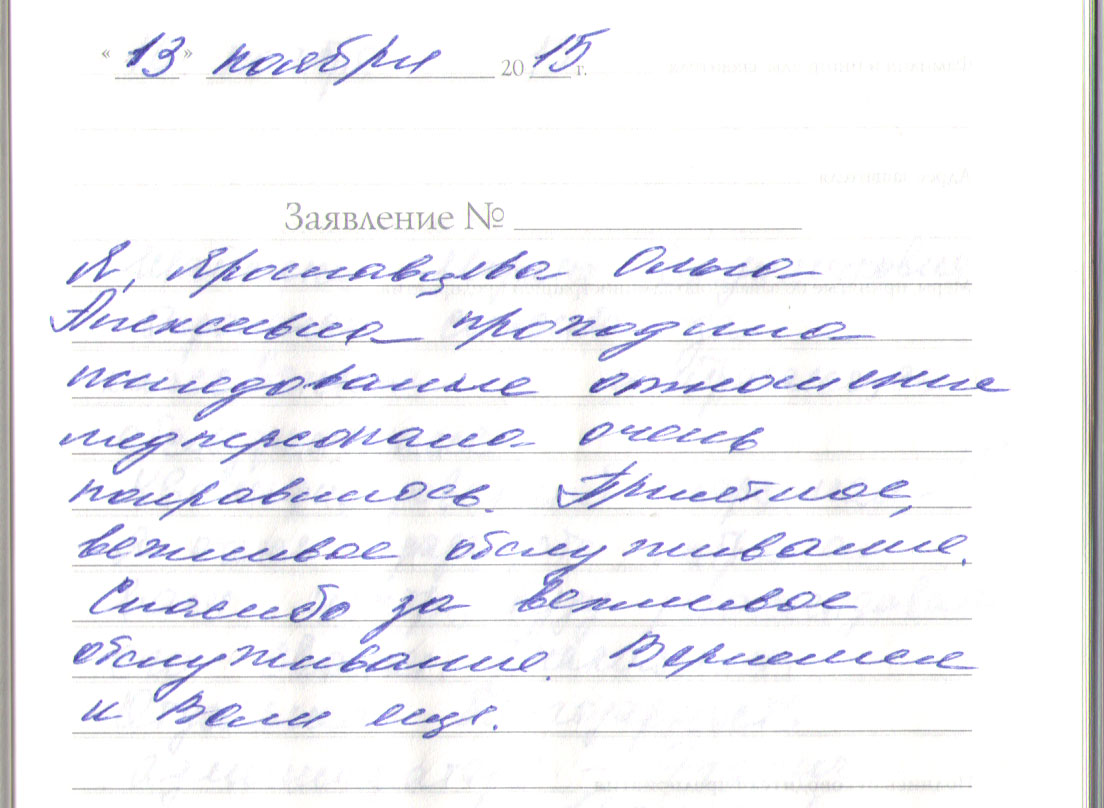 « 13 » ноября 20 15 г.
Заявление №
Я, Ярославцева Ольга
Алексеевна проходила
исследование отношение
медперсонала очень
понравилось. Приятное,
вежливое обслуживание.
Спасибо за вежливое
обслуживание. Вернемся
к Вам еще.